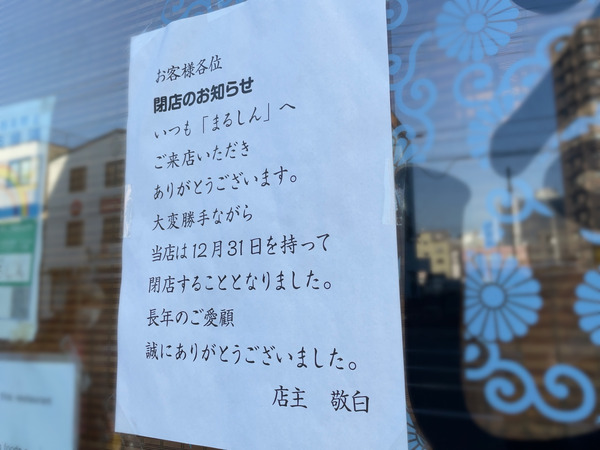 お客様各位
閉店のお知らせ
いつも「まるしん」へ
ご来店いただき
ありがとうございます。
大変勝手ながら
当店は12月31日を持って
閉店することとなりました。
長年のご愛顧
誠にありがとうございました。
店主 敬白
restaurant